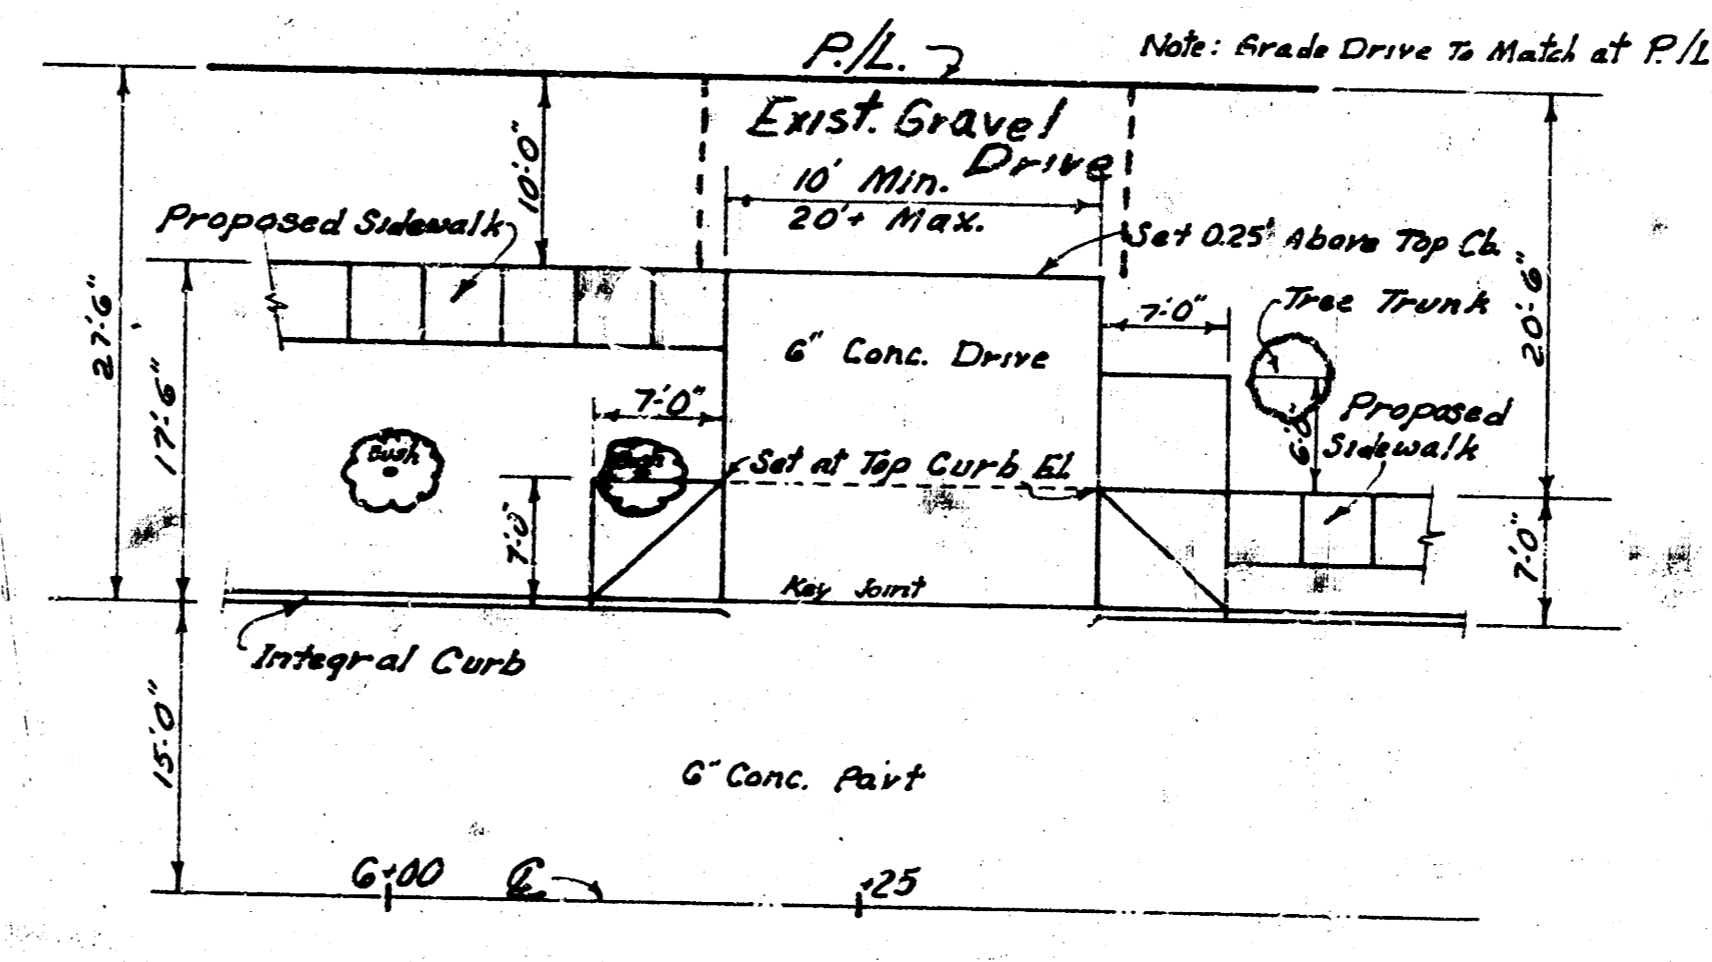 P./L.
Note: Grade Drive To Match at P./L
Exist. Gravel
Drive
10' Min.
20'+ Max.
10'-0"
Proposed Sidewalk
Set 0.25' Above Top Cb.
27'-6"
17'-6"
20'-6"
7'-0"
Tree Trunk
6" Conc. Drive
7'-0"
6'-0"
Proposed
Sidewalk
Bush
Bush
Set at Top Curb El.
7'-0"
7'-0"
Key Joint
Integral Curb
15'-0"
6" Conc. Pavt
6+00
℄
+25